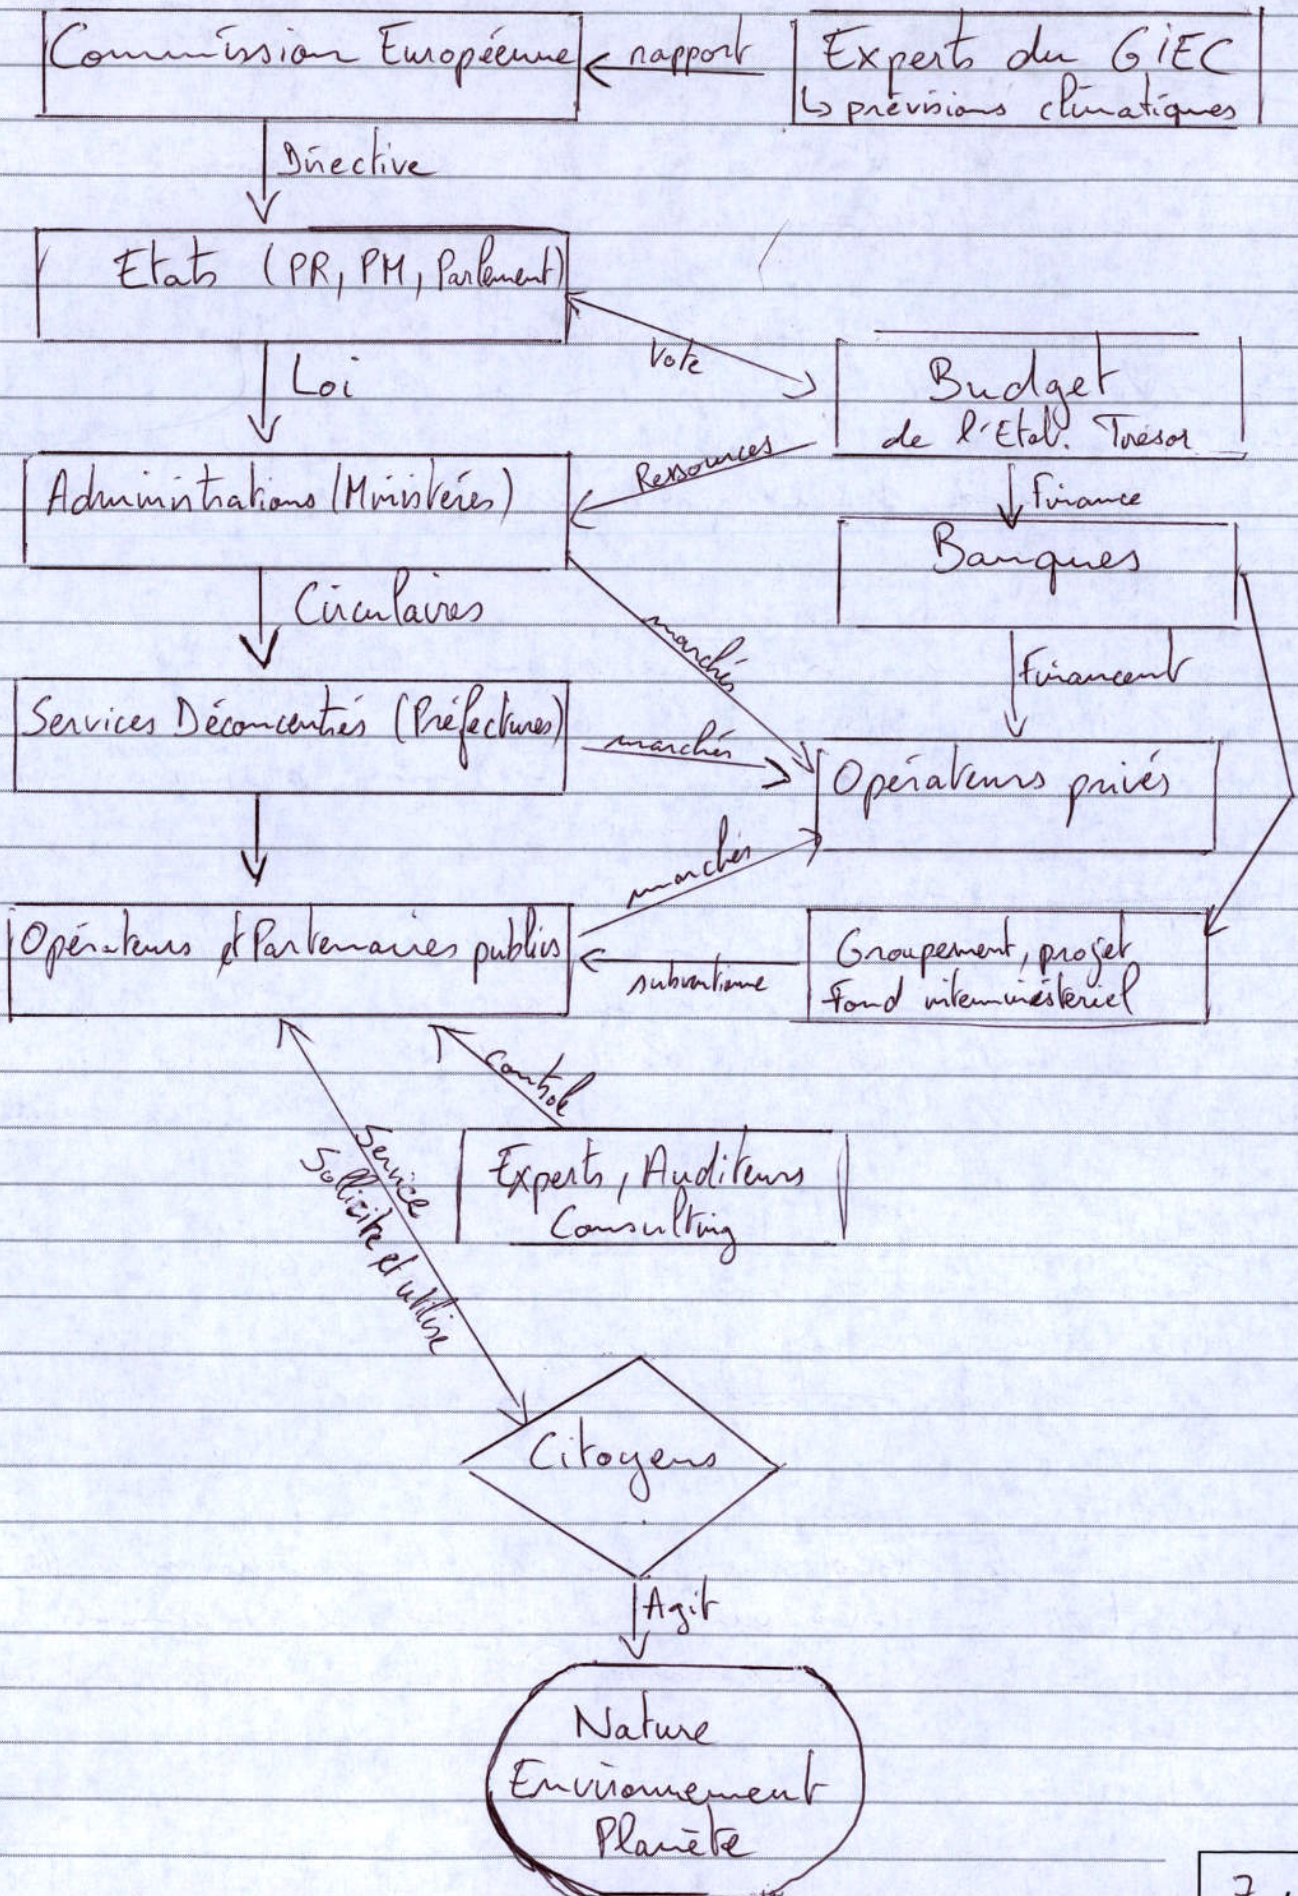 Commission Européenne
rapport
Experts du GIEC
↳ prévisions climatiques
Directive
Etats (PR, PM, Parlement)
Vote
Loi
Budget
de l'Etat. Trésor
Ressources
Administrations (Ministères)
Finance
Banques
Circulaires
marchés
Financent
Services Déconcentrés (Préfectures)
marchés
Opérateurs privés
marchés
Opérateurs et Partenaires publics
subventionne
Groupement, projet
Fond interministeriel
controle
Service
Sollicite et utilise
Experts, Auditeurs
Consulting
Citoyens
Agit
Nature
Environnement
Planète